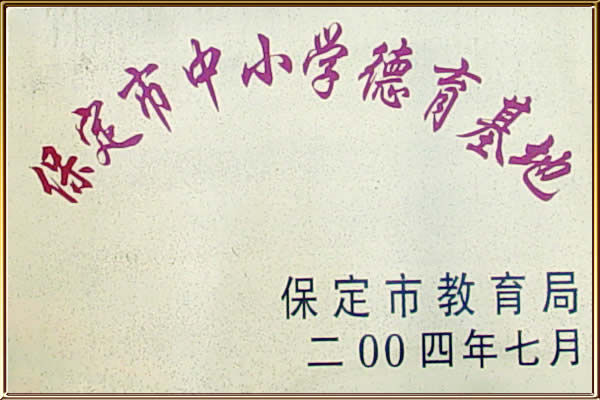 保定市中小学德育基地
保定市教育局
二00四年七月